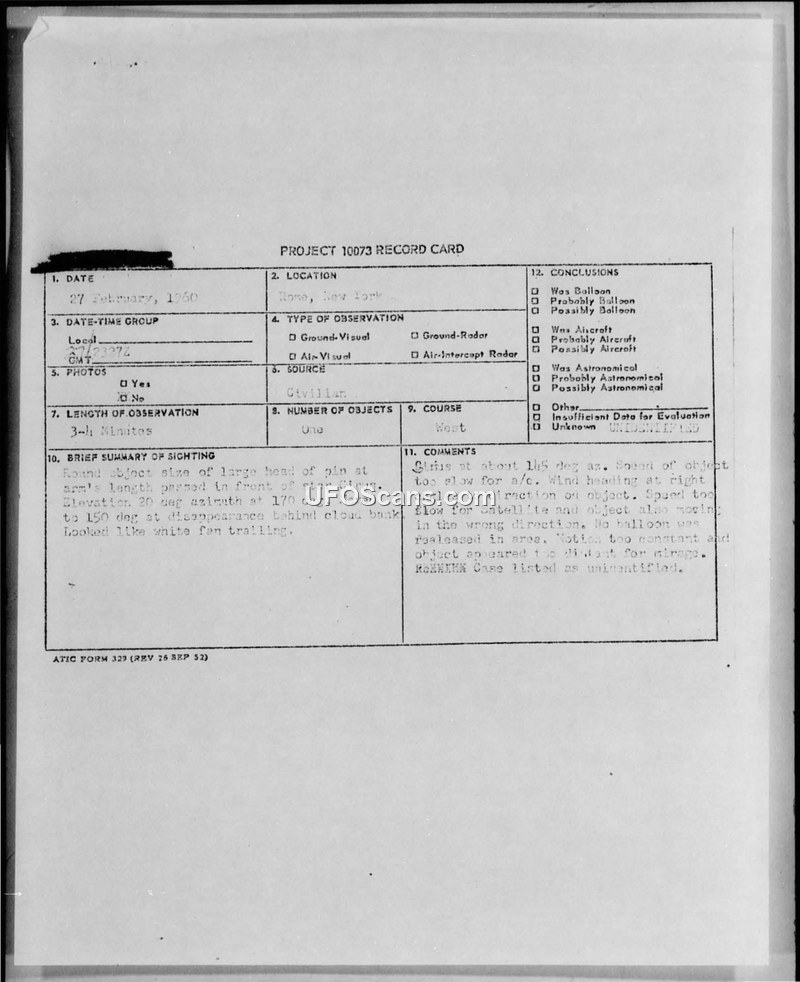 PROJECT 10073 RECORD CARD
1. DATE
27 February, 1960
2. LOCATION
Rome, New York
12. CONCLUSIONS
Was Balloon
Probably Balloon
Possibly Balloon
Was Aircraft
Probably Aircraft
Possibly Aircraft
Was Astronomical
Probably Astronomical
Possibly Astronomical
Other
Insufficient Data for Evaluation
Unknown UNIDENTIFIED
3. DATE-TIME GROUP
Local
GMT 27/2327Z
4. TYPE OF OBSERVATION
Ground-Visual Ground-Radar
Air-Visual Air-Intercept Radar
5. PHOTOS
Yes
No
6. SOURCE
Civilian
7. LENGTH OF OBSERVATION
3-4 Minutes
8. NUMBER OF OBJECTS
One
9. COURSE
West
10. BRIEF SUMMARY OF SIGHTING
Round object size of large head of pin at
arm's length passed in front of
Elevation 20 deg azimuth at 170
to 150 deg at disappearance behind cloud bank
Looked like white fan trailing.
11. COMMENTS
Sirius at about 145 deg az. Speed of object
too slow for a/c. Wind heading at right
direction on object. Speed too
slow for satellite and object also moving
in the wrong direction. No balloon was
realeased in area. Motion too constant and
object appeared too distant for mirage.
Case listed as unidentified.
ATIC FORM 329 (REV 26 SEP 52)
UFOScans.com